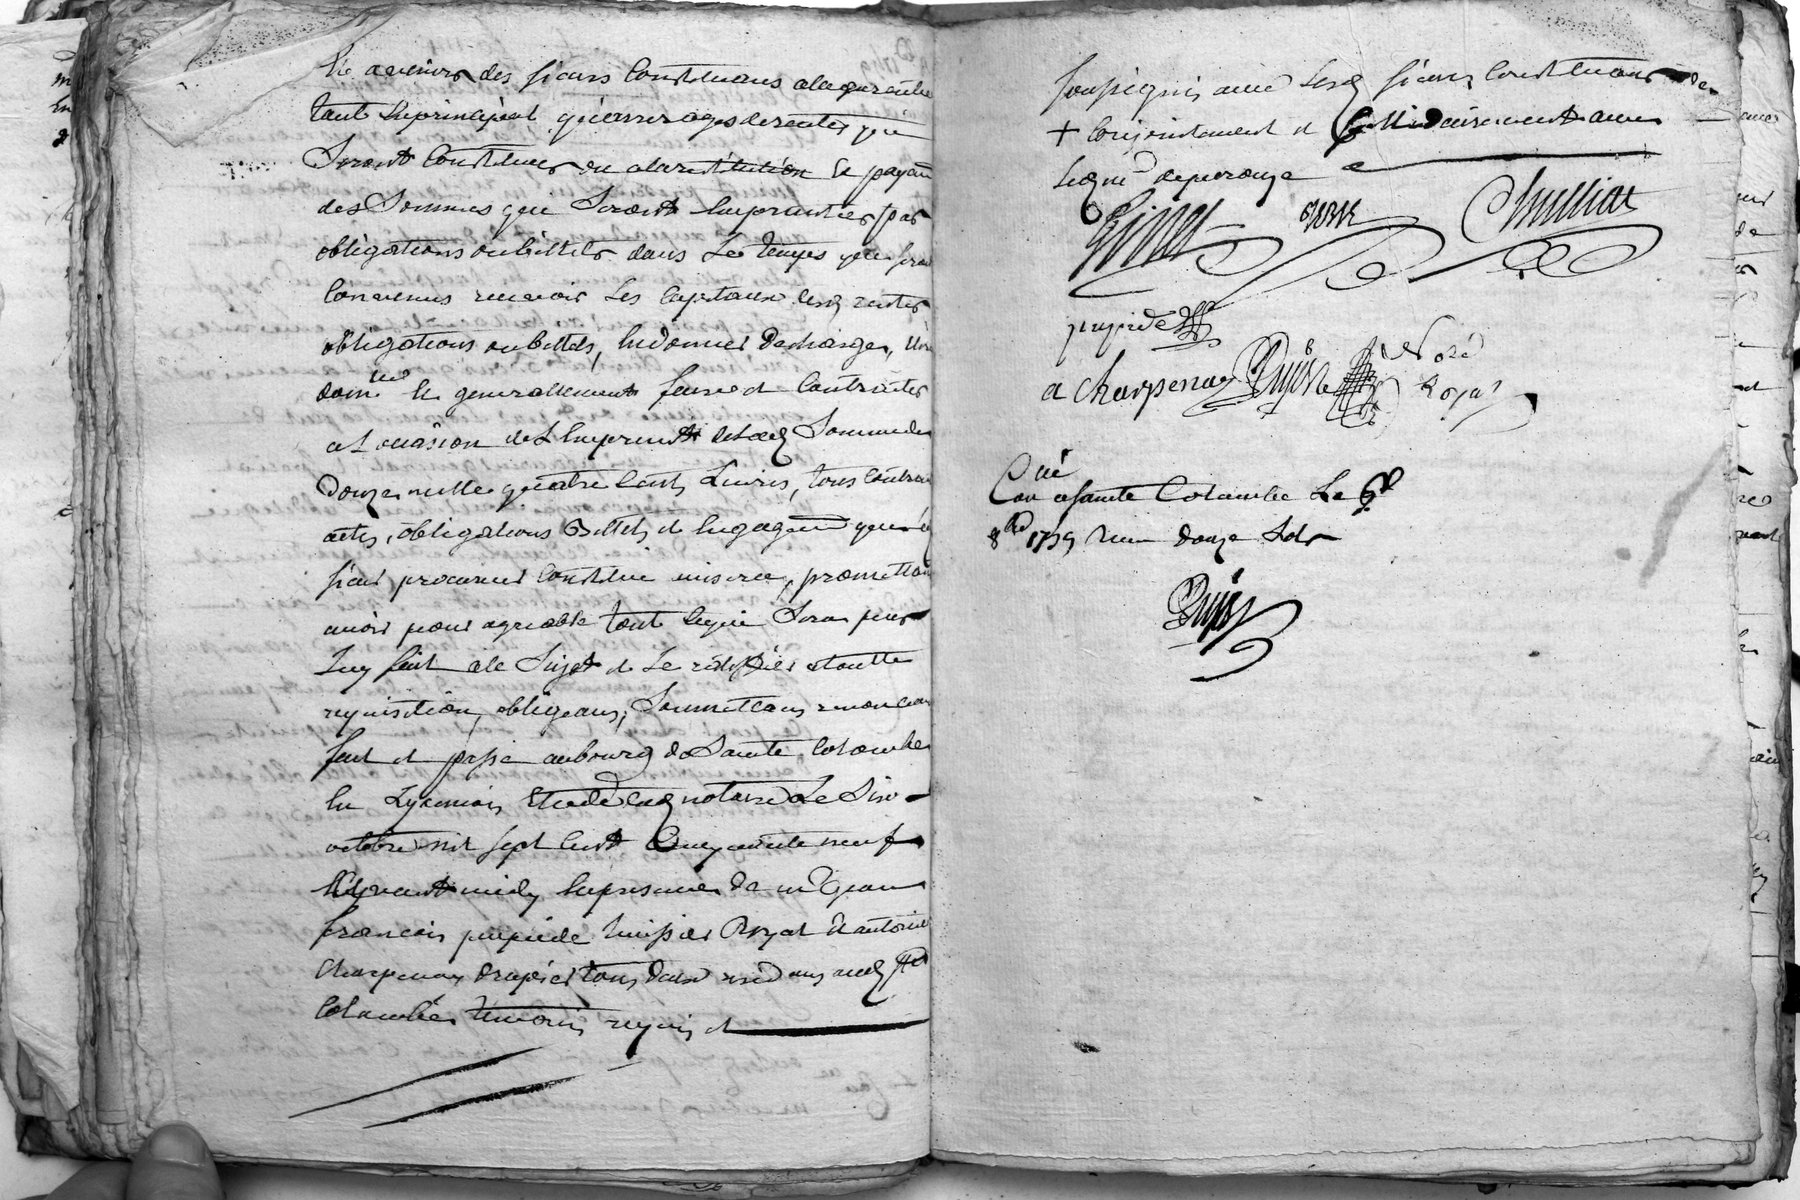 et a venir des sieurs Constituans a la garentie
tant du principal qu'arrerages des rentes qui
Seront Constituees ou a la restitution et payem
des Sommes qui Seront Empruntées par
obligations ou billets dans Les temps qui seront
Convenus recevoir Les Capitaux desd rentes
obligations ou billets, En donner decharge,
Et generallement faire et Contracter
a L'occasion de L'Emprunt de lad Somme de
Douze mille quatre Cents Livres, tous Contrats
actes, obligations Billets et Engagem que led
sieur procureur Constitué avisera, promettant
avoir pour agreable tout Ce qui Sera par
Luy fait a Ce Sujet et Le ratiffier a toutte
requisition, obligeans, Soumettans renonceans
fait et passé au bourg de Sainte Colombe
En Lyonnois Etude dud notaire Le Six
octobre mil sept Cent Cinquante neuf
avant midy En presence de Mr Jean
francois Huissier Royal Et antoine
Charpenay drapier tous deux resid aud Ste
Colombe temoins requis et
soussignés avec Lesd sieurs Constituans
+ Conjointement et Solidairement avec
Chulliat
a charpenay Dujast Noré
Royal
C lé
Con a Sainte Colombe Le 9e
8bre 1759 Reçu Douze Sols
Dujast